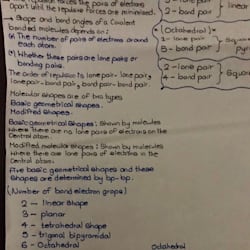 repulsion forces the pairs of electrons
apart until the repulsive forces are minimised.
→ Shape and bond angles of a Covalent
bonded molecules depends on:
(i) The number of pairs of electrons around
each atom.
(ii) Whether these pairs are lone pairs or
bonding pairs.
The order of repulsion is lone pair-lone pair,
lone pair-bond pair, bond pair-bond pair.
Molecular shapes are of two types
Basic geometrical shapes.
Modified shapes.
Basic geometrical shapes: Shown by molecules
where there are no lone pairs of electrons on the
central atom.
Modified molecular shapes: Shown by molecules
where there are lone pairs of electrons in the
central atom.
Five basic geometrical shapes and these
shapes are determined by bp-bp.
(Number of bond electron groups)
2 — linear shape
3 — planar
4 — tetrahedral shape
5 — trigonal bipyramidal
6 — Octahedral
2 - bond pair
linear
(Octahedral)
1 - lone pair
5 - bond pair
Square
2 - lone pair
4 - bond pair
Square
Octahedral